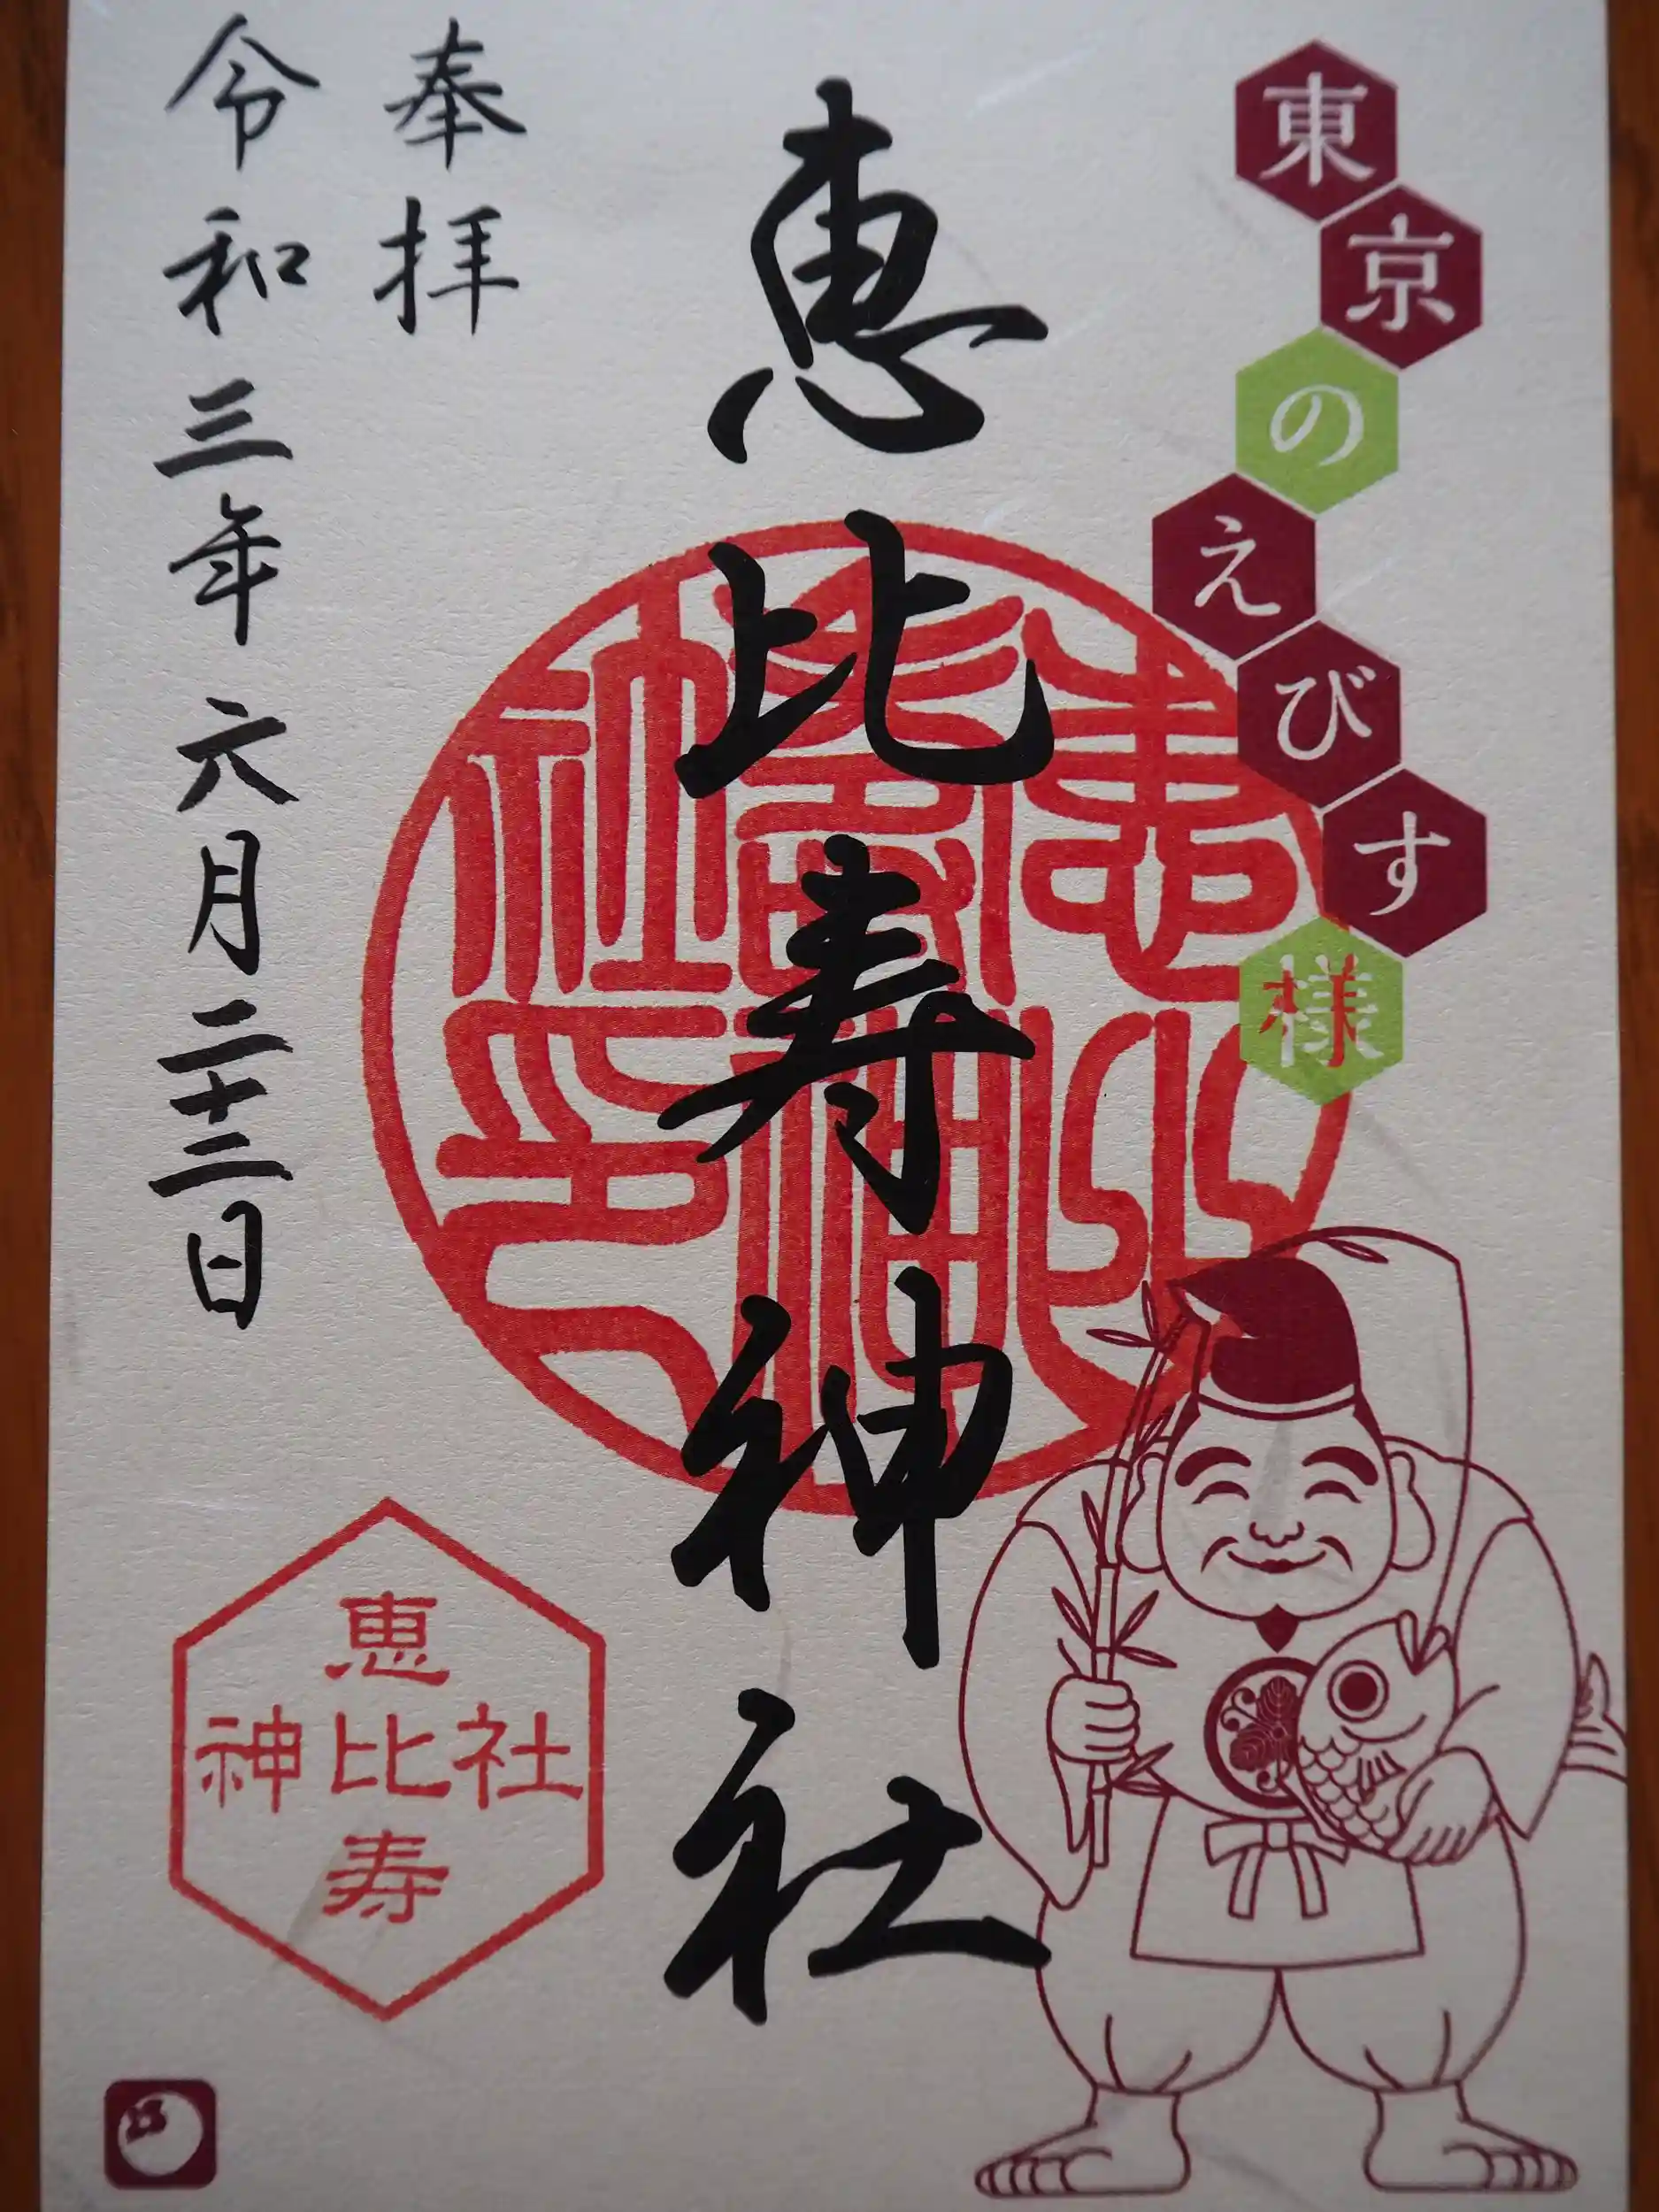 東京のえびす様
恵比寿神社
恵比
壽神
社印
奉拝
令和三年六月二十三日
恵比寿神社